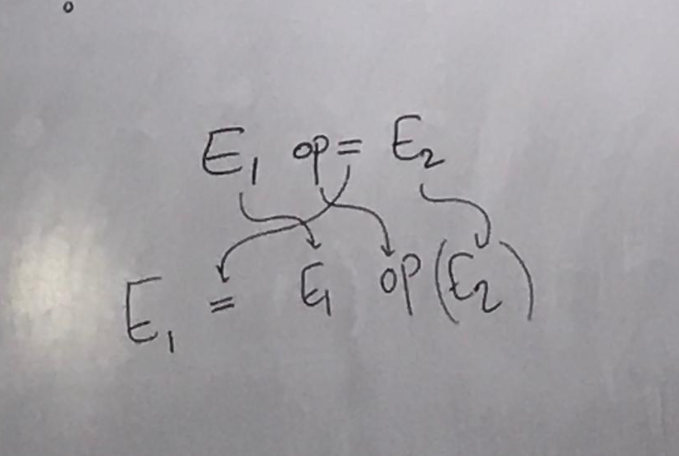 E₁ op= E₂
E₁ = E₁ op(E₂)